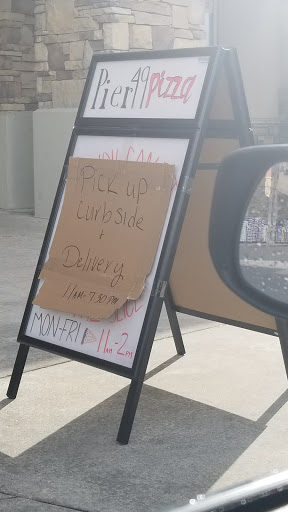 Pier 49 pizza
YOU CAN
Pick up
Curbside
+
Delivery
11AM-7:30PM
MON-FRI 11AM-2PM